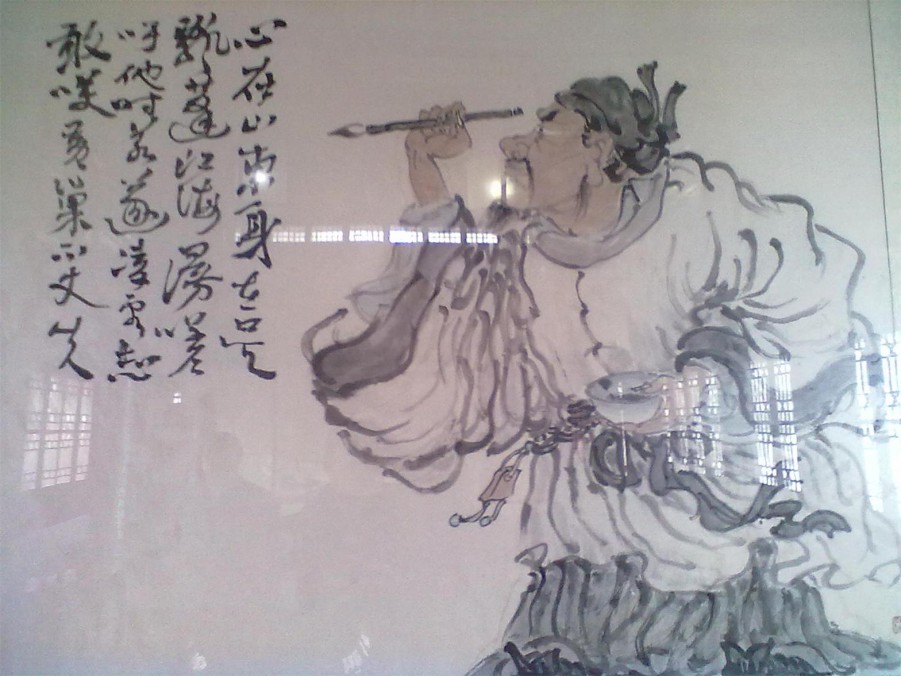 心在山東身在吴
飄蓬江海漫嗟
吁他时若遂凌雲志
敢咲黄巢不丈夫